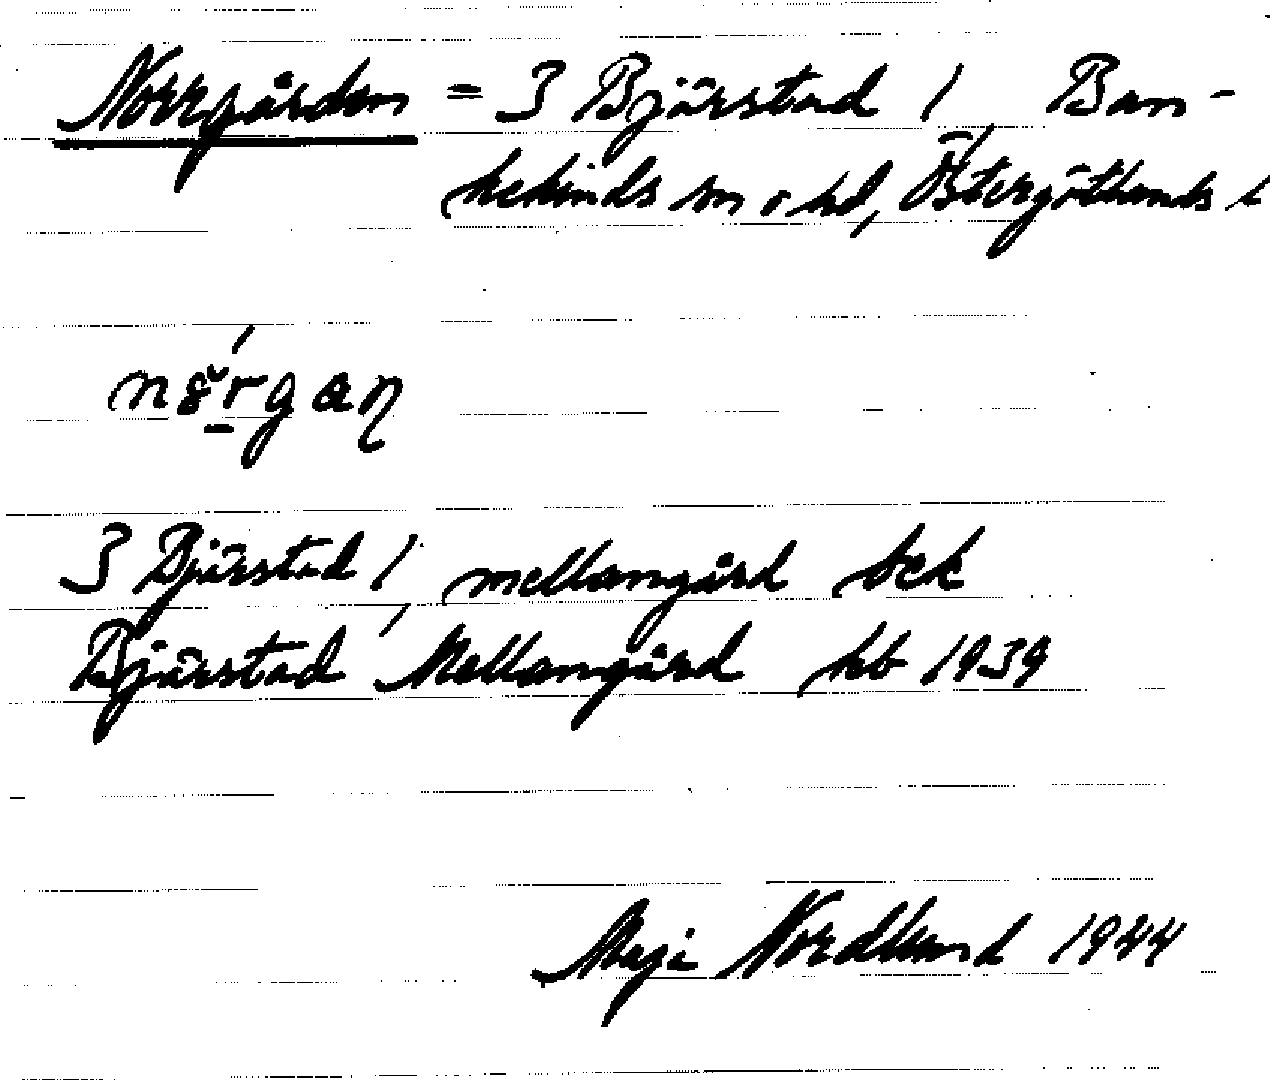 Norrgården = 3 Bjärstad 1, Ban-
kekinds sn o hd, Östergötlands l
3 Bjärstad 1, mellangård bck
Bjärstad Mellangård kb 1939
Maji Nordlund 1944